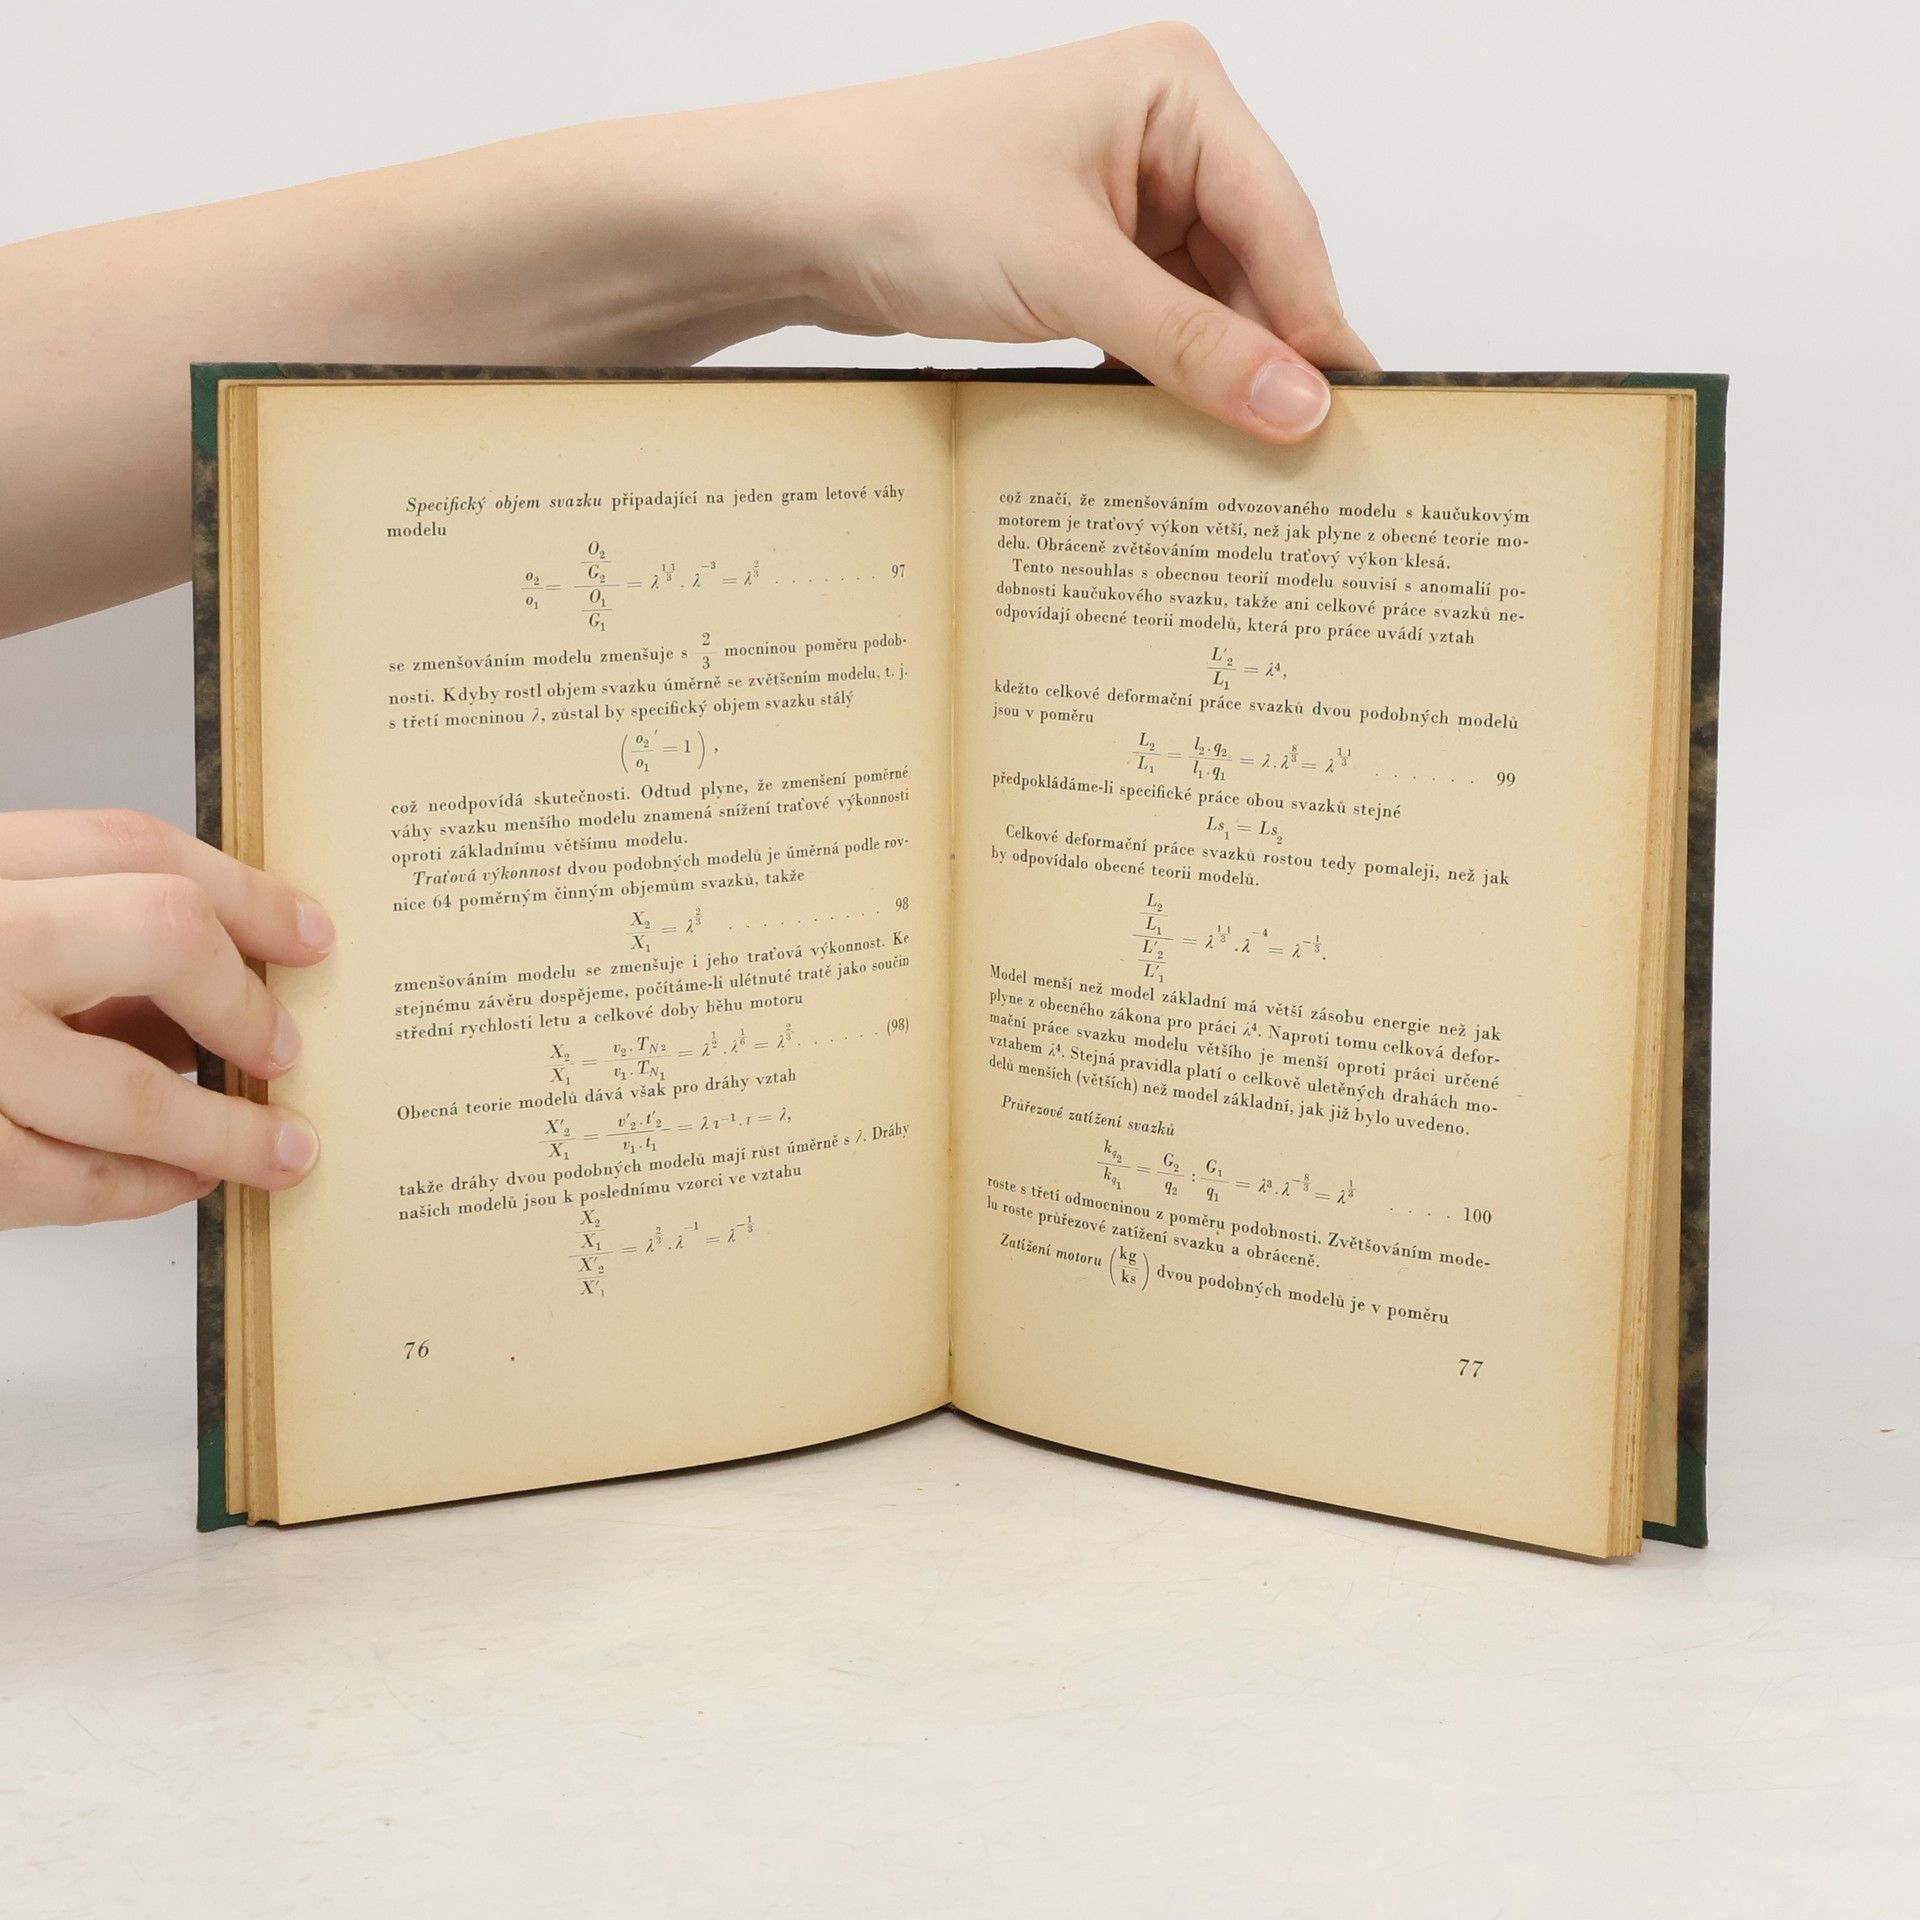 Specifický objem svazku připadající na jeden gram letové váhy
modelu
o₂/o₁ = (O₂/G₂)/(O₁/G₁) = λ^(11/3) . λ^(−3) = λ^(2/3) . . . . . . . 97
se zmenšováním modelu zmenšuje s 2/3 mocninou poměru podob-
nosti. Kdyby rostl objem svazku úměrně se zvětšením modelu, t. j.
s třetí mocninou λ, zůstal by specifický objem svazku stálý
(o₂′/o₁ = 1),
což neodpovídá skutečnosti. Odtud plyne, že zmenšení poměrné
váhy svazku menšího modelu znamená snížení traťové výkonnosti
oproti základnímu většímu modelu.
Traťová výkonnost dvou podobných modelů je úměrná podle rov-
nice 64 poměrným činným objemům svazků, takže
X₂/X₁ = λ^(2/3) . . . . . . . . . . 98
zmenšováním modelu se zmenšuje i jeho traťová výkonnost. Ke
stejnému závěru dospějeme, počítáme-li ulétnuté tratě jako součin
střední rychlosti letu a celkové doby běhu motoru
X₂/X₁ = (v₂ . T_N2)/(v₁ . T_N1) = λ^(1/2) . λ^(1/6) = λ^(2/3) . . . . . . (98)
Obecná teorie modelů dává však pro dráhy vztah
X′₂/X₁ = (v′₂ . t′₂)/(v₁ . t₁) = λ τ⁻¹ . τ = λ,
takže dráhy dvou podobných modelů mají růst úměrně s λ. Dráhy
našich modelů jsou k poslednímu vzorci ve vztahu
(X₂/X₁)/(X′₂/X′₁) = λ^(2/3) . λ^(−1) = λ^(−1/3)
76
což značí, že zmenšováním odvozovaného modelu s kaučukovým
motorem je traťový výkon větší, než jak plyne z obecné teorie mo-
delu. Obráceně zvětšováním modelu traťový výkon klesá.
Tento nesouhlas s obecnou teorií modelu souvisí s anomalií po-
dobnosti kaučukového svazku, takže ani celkové práce svazků ne-
odpovídají obecné teorii modelů, která pro práce uvádí vztah
L′₂/L₁ = λ⁴,
kdežto celkové deformační práce svazků dvou podobných modelů
jsou v poměru
L₂/L₁ = (l₂ . q₂)/(l₁ . q₁) = λ . λ^(8/3) = λ^(11/3) . . . . . . 99
předpokládáme-li specifické práce obou svazků stejné
Ls₁ = Ls₂
Celkové deformační práce svazků rostou tedy pomaleji, než jak
by odpovídalo obecné teorii modelů.
(L₂/L₁)/(L′₂/L′₁) = λ^(11/3) . λ^(−4) = λ^(−1/3).
Model menší než model základní má větší zásobu energie než jak
plyne z obecného zákona pro práci λ⁴. Naproti tomu celková defor-
mační práce svazku modelu většího je menší oproti práci určené
vztahem λ⁴. Stejná pravidla platí o celkově uletěných drahách mo-
delů menších (větších) než model základní, jak již bylo uvedeno.
Průřezové zatížení svazků
k_q₂/k_q₁ = G₂/q₂ : G₁/q₁ = λ³ . λ^(−8/3) = λ^(1/3) . . . . 100
roste s třetí odmocninou z poměru podobnosti. Zvětšováním mode-
lu roste průřezové zatížení svazku a obráceně.
Zatížení motoru (kg/ks) dvou podobných modelů je v poměru
77